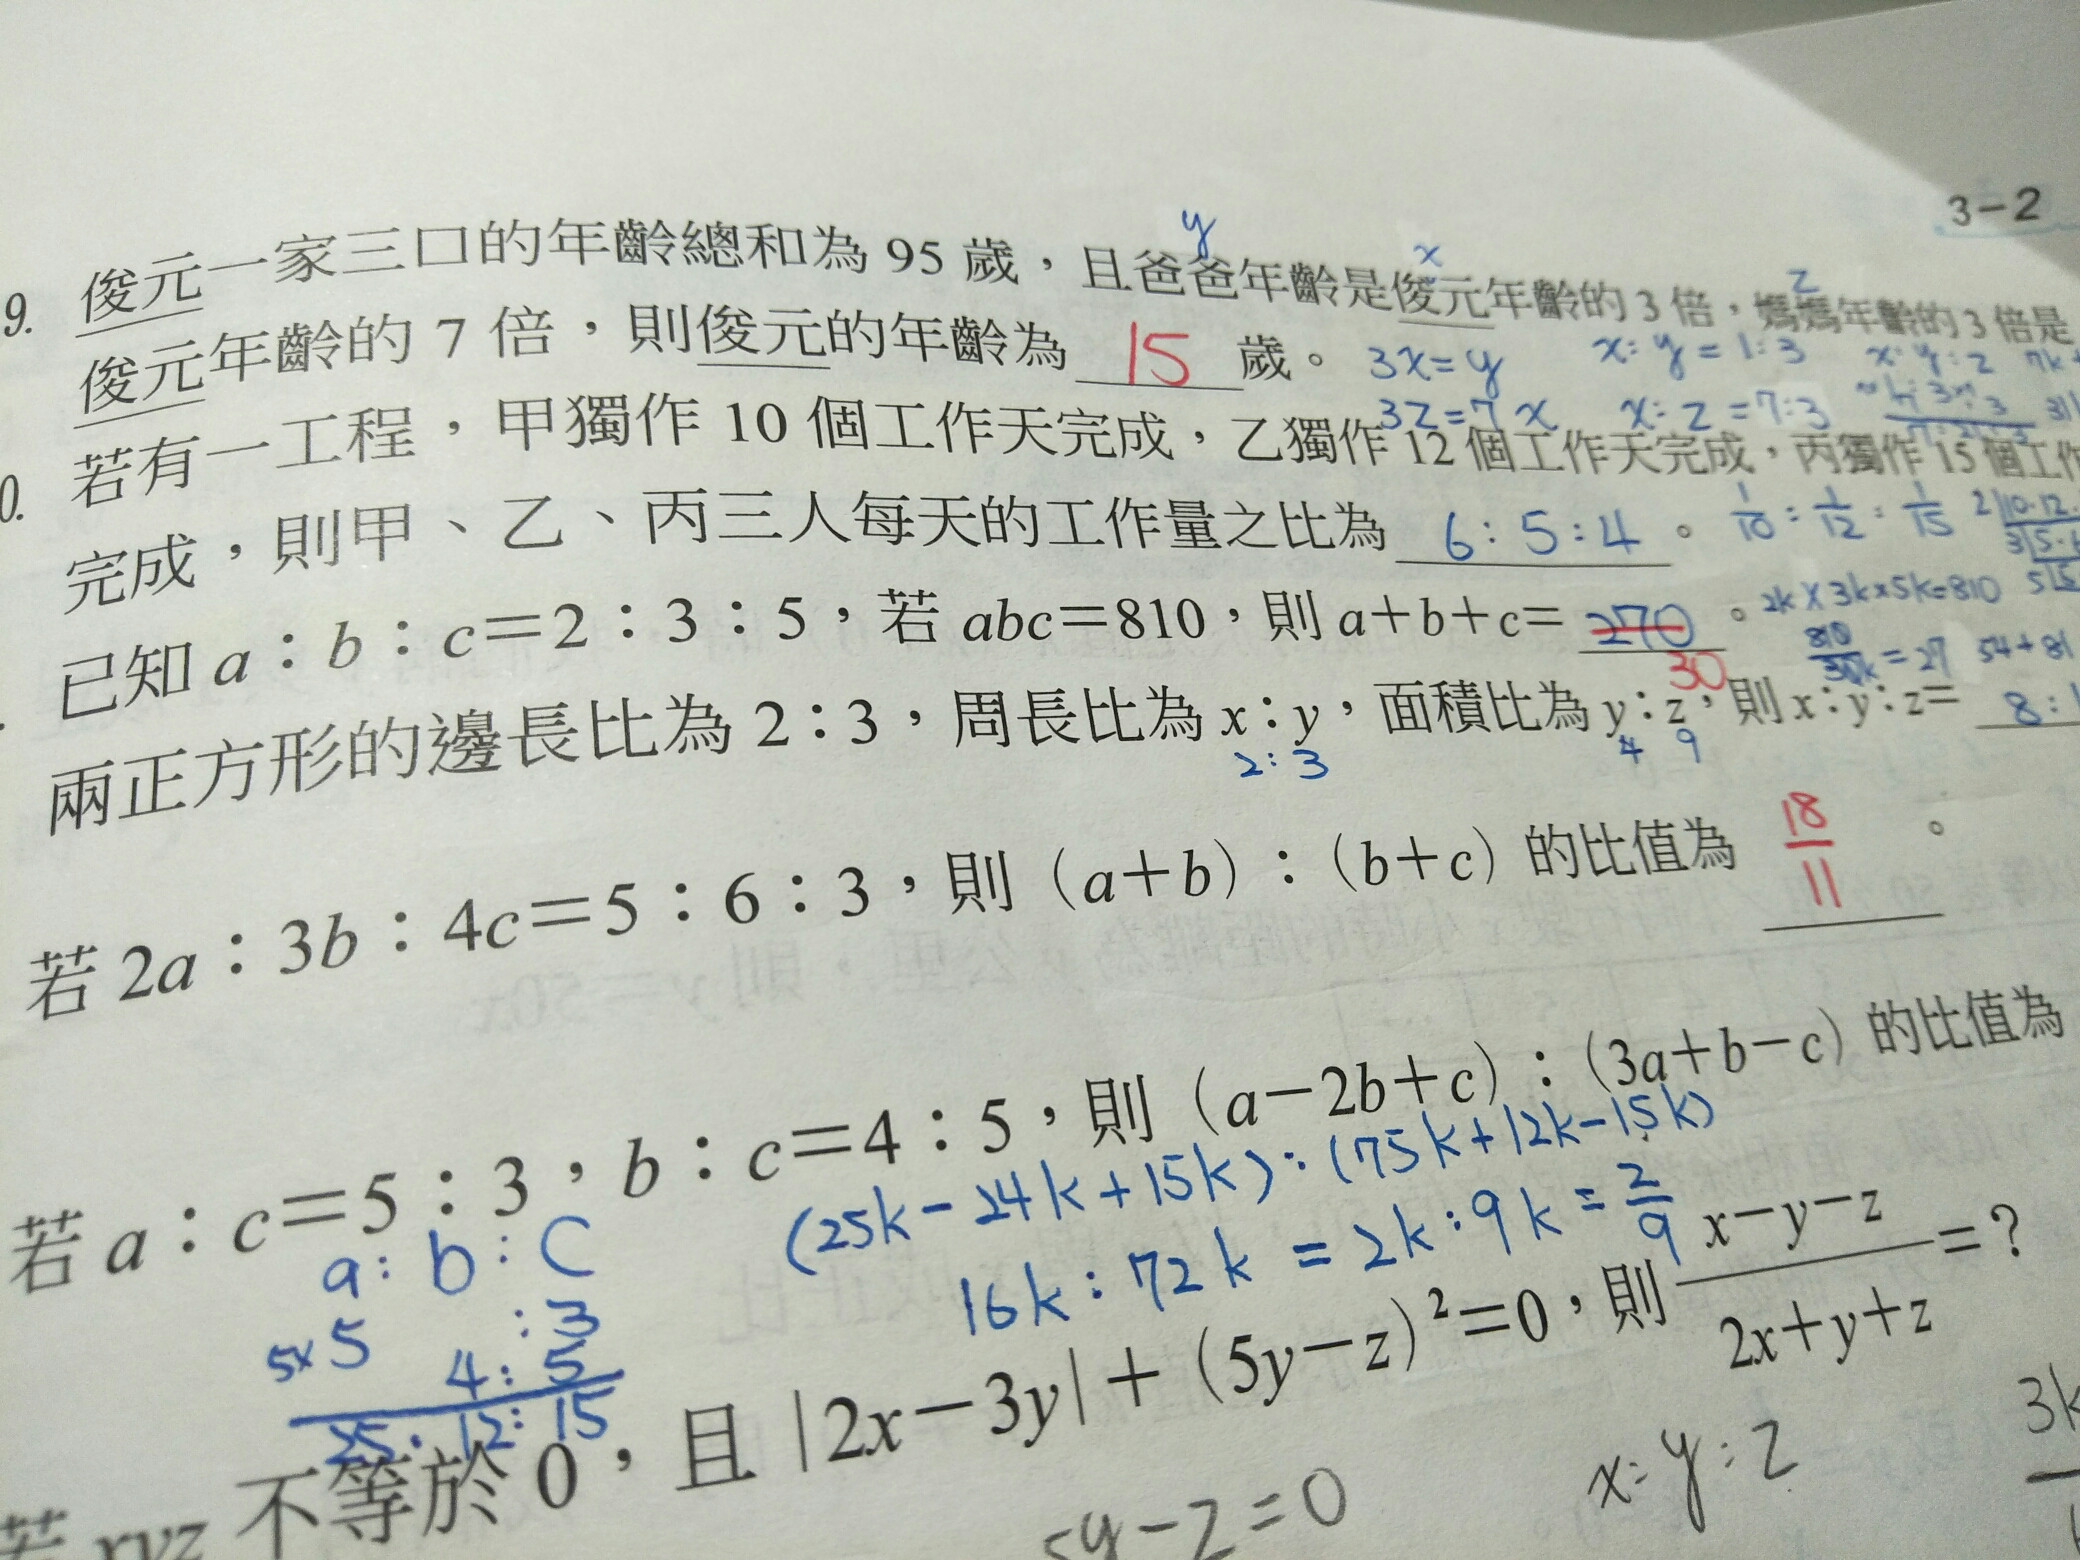 3-2
y
x
z
9. 俊元一家三口的年齡總和為 95 歲，且爸爸年齡是俊元年齡的 3 倍，媽媽年齡的 3 倍是
俊元年齡的 7 倍，則俊元的年齡為 15 歲。
3x=y x:y=1:3 x:y:z
3z=7x x:z=7:3
0. 若有一工程，甲獨作 10 個工作天完成，乙獨作 12 個工作天完成，丙獨作 15 個工作
完成，則甲、乙、丙三人每天的工作量之比為 6:5:4 。
1/10 : 1/12 : 1/15
已知 a：b：c＝2：3：5，若 abc＝810，則 a＋b＋c＝ 270 。 2k×3k×5k=810
30
=27 54+81
兩正方形的邊長比為 2：3，周長比為 x：y，面積比為 y：z，則 x：y：z＝ 8:1
2:3 4 9
若 2a：3b：4c＝5：6：3，則（a＋b）：（b＋c）的比值為 18/11 。
若 a：c＝5：3，b：c＝4：5，則（a－2b＋c）：（3a＋b－c）的比值為
(25k-24k+15k):(75k+12k-15k)
16k:72k=2k:9k=2/9
a:b:c
5× 5 :3
4:5
25:12:15
若 xyz 不等於 0，且 |2x－3y|＋（5y－z）²＝0，則 x－y－z/2x＋y＋z＝？
5y-z=0
x:y:z
3k